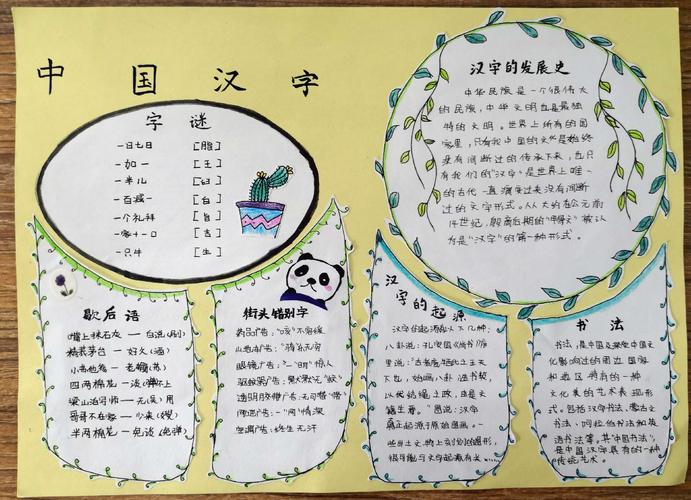 中国汉字
字谜
一日七日 [脂]
一加一 [王]
一半儿 [臼]
一百减一 [白]
一个礼拜 [旨]
一家十一口 [吉]
一只牛 [生]
汉字的发展史
中华民族是一个很伟大
的民族,中华文明也是最独
特的文明。世界上所有的国
家里,只有我中国的文化是始终
没有间断过的传承下来,也只
有我们的“汉字”是世界上唯一
的古代一直演变过来没有间断
过的文字形式。从大约在公元前
14世纪,殷商后期的“甲骨文”被认
为是“汉字”的第一种形式。
歇后语
(墙上抹石灰—白说(刷)
精装茅台—好久(酒)
四两棉花—谈(弹)不上
梁山泊军师—无(吴)用
哥哥不在家—少来(嫂)
半两棉花—免谈(免弹)
街头错别字
药品广告:“咳”不容缓
山地车广告:“骑”乐无穷
眼镜广告:一“明”惊人
驱蚊器广告:默默无“蚊”
透明胶带广告:无可“带”
网吧广告:一“网”情深
空调广告:终生无汗
汉字的起源
汉字的起源有以下几种:
八卦说:孔安国《尚书》序
里说:“古者庖牺氏之王天
下也,始画八卦,造书契,
以代结绳之政,由是文
籍生焉。”图说:汉字
真正起源于原始图画。一
些出土文物上有刻的图形,
很可能与文字起源有关
书法
书法,是中国及深受中国文
化影响过的周边国家
和地区特有的一种
文化美的艺术表现形
式。包括汉字书法、蒙古文
书法、阿拉伯书法和英
语书法等。其“中国书法”,
是中国汉字具有的一种
传统艺术。